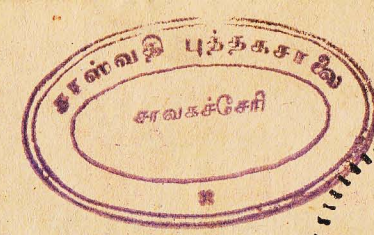 சரஸ்வதி புத்தகசாலை
சாவகச்சேரி